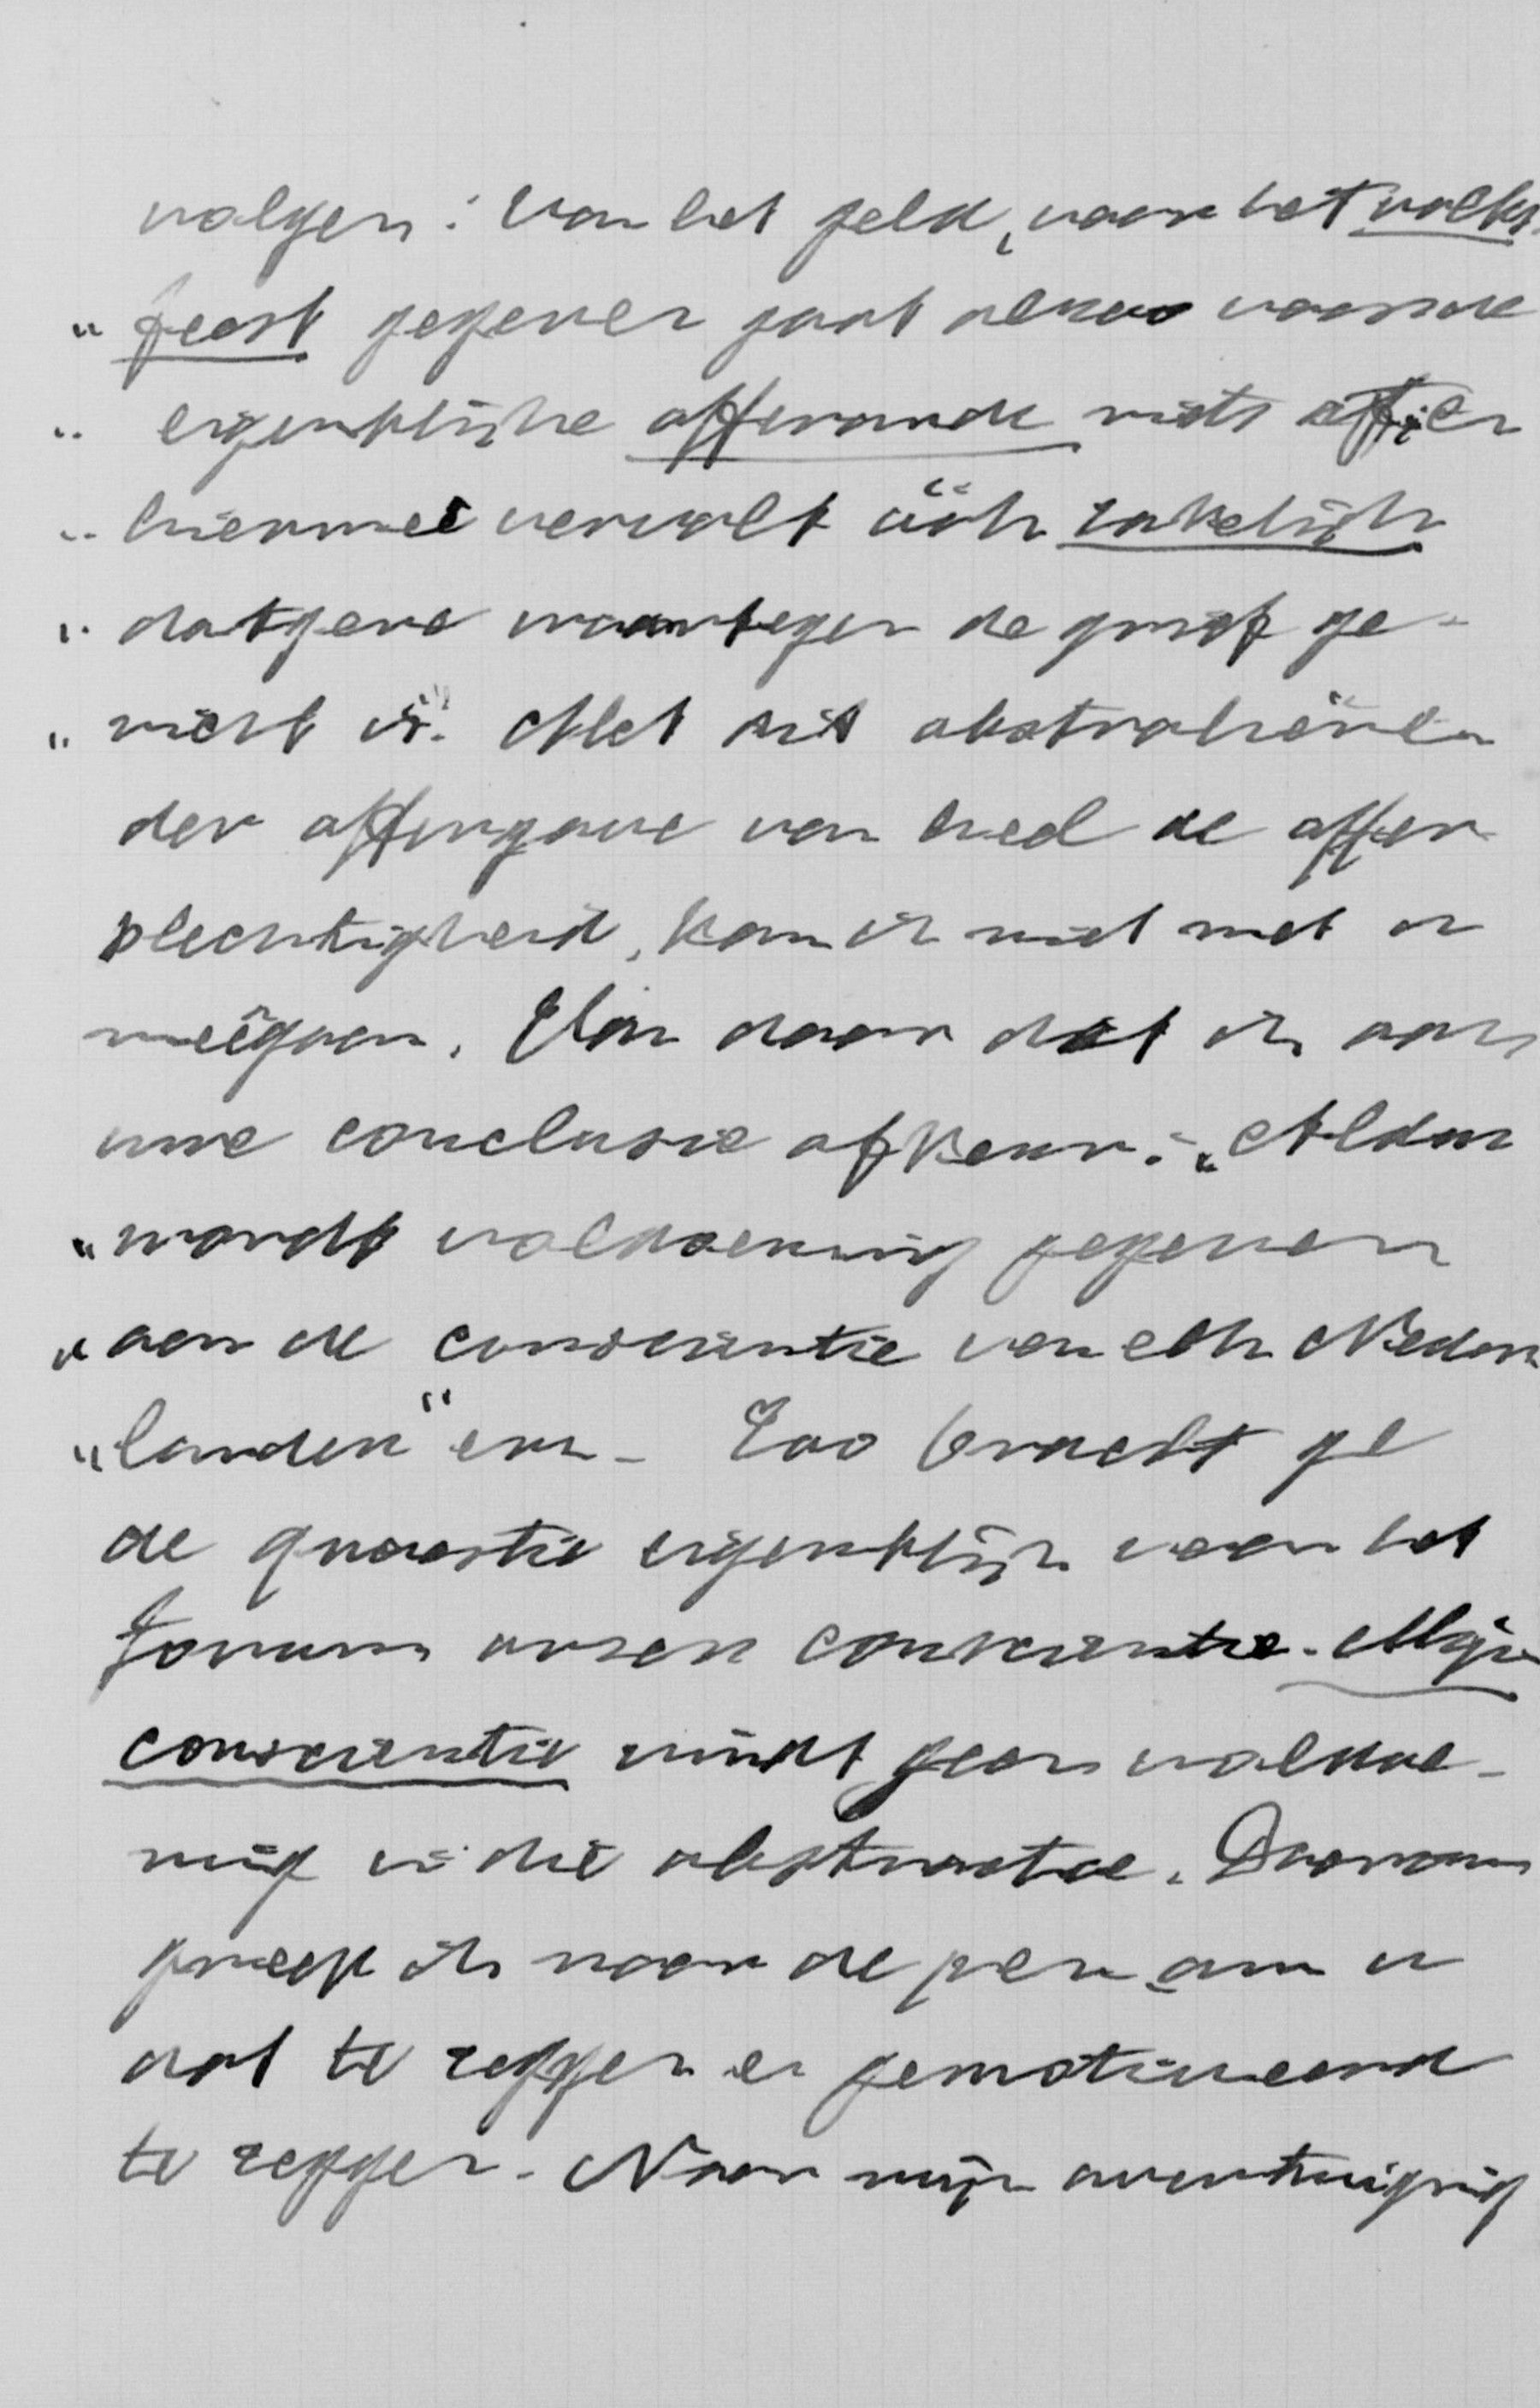 volgen: Van het geld, voor het volks-
" feest gegeven gaat alzoo voor de
" eigentlijke offerande niets af; en
" hiermeê vervalt óók zakelijk
" datgene waartegen de grief ge-
" richt is". Met dit abstrahéren
der offergave van heel de offer
plechtigheid, kan ik niet met u
meêgaan. Van daar dat ik ook
uwe conclusie afkeur: "Aldus
" wordt voldoening gegeven
" aan de conscientie van elk Neder-
" lander" enz. Zoo bracht ge
de quaestie eigentlijk voor het
forum onzer conscientie. Mijn
conscientie vindt geen voldoe-
ning in die abstractie. Daarom
greep ik naar de pen om u
dat te zeggen en gemotiveerd
te zeggen. Naar mijn overtuiging